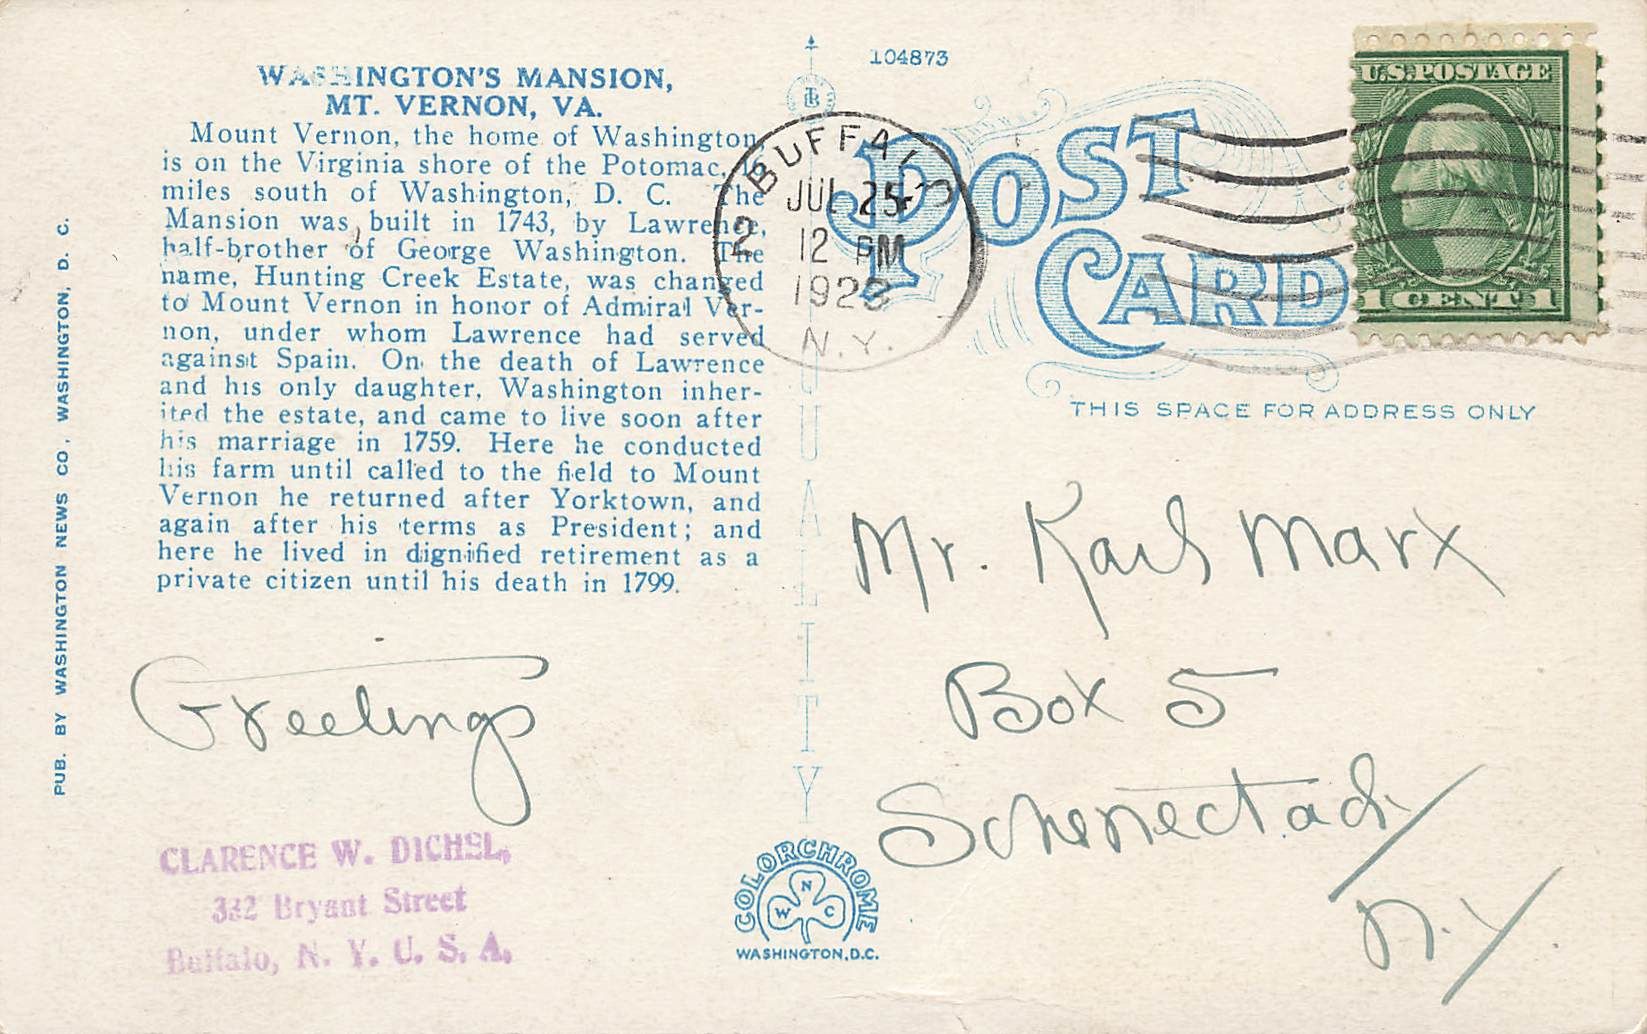 WASHINGTON'S MANSION,
MT. VERNON, VA.
Mount Vernon, the home of Washington
is on the Virginia shore of the Potomac,
miles south of Washington, D. C. The
Mansion was built in 1743, by Lawrence,
half-brother of George Washington. The
name, Hunting Creek Estate, was changed
to Mount Vernon in honor of Admiral Ver-
non, under whom Lawrence had served
against Spain. On the death of Lawrence
and his only daughter, Washington inher-
ited the estate, and came to live soon after
his marriage in 1759. Here he conducted
his farm until called to the field to Mount
Vernon he returned after Yorktown, and
again after his terms as President; and
here he lived in dignified retirement as a
private citizen until his death in 1799.
PUB. BY WASHINGTON NEWS CO., WASHINGTON, D. C.
Greetings
CLARENCE W. DICHEL,
Bryant Street
Buffalo, N. Y. U. S. A.
104873
BUFFALO
2
JUL 25
12 PM
1923
N.Y.
POST
CARD
U.S. POSTAGE
1 CENT 1
THIS SPACE FOR ADDRESS ONLY
QUALITY
Mr. Karl Marx
Box 5
Schenectady
N.Y.
COLORCHROME
W N C
WASHINGTON, D.C.